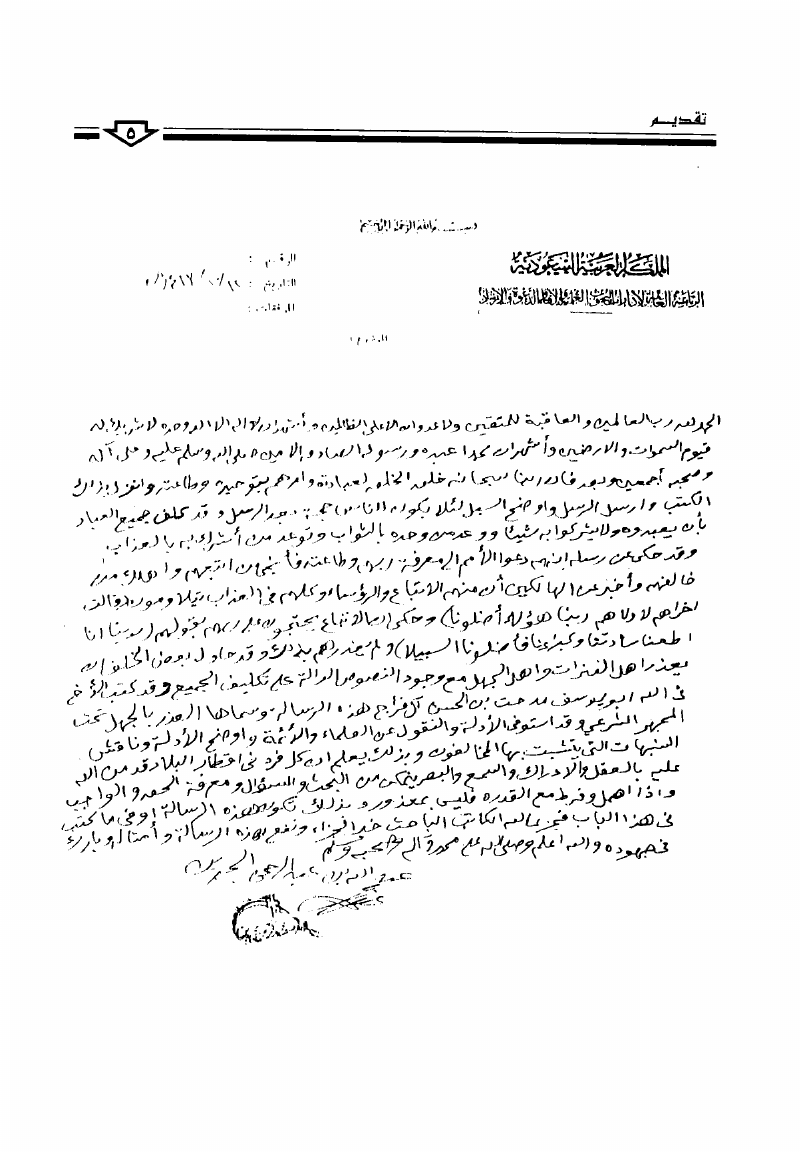 تقديم
٥
بسم الله الرحمن الرحيم
المملكة العربية السعودية
الرئاسة العامة لإدارات البحوث العلمية والإفتاء والدعوة والإرشاد
الرقم :
التاريخ :
المرفقات :
الموضوع :
الحمد لله رب العالمين والعاقبة للمتقين ولا عدوان الا على الظالمين وأشهد ان لا اله الا الله وحده لا شريك له
قيوم السموات والارضين وأشهد ان محمدا عبده ورسوله الصادق الامين صلى الله وسلم عليه وعلى آله
وصحبه أجمعين وبعد فان ربنا سبحانه خلق الخلق لعبادته وامرهم بتوحيده وطاعته وانزل بذلك
الكتب وارسل الرسل واوضح السبل لئلا يكون للناس حجة بعد الرسل وقد كلف جميع العباد
بأن يعبدوه ولا يشركوا به شيئا ووعد من وحده بالثواب وتوعد من أشرك به بالعذاب
وقد حكى عن رسله انهم دعوا الأمم الى معرفة ربهم وطاعته فأنجى من اتبعهم واهلك من
خالفهم وأخبر عن الهالكين أن منهم الاتباع والرؤساء وكلهم في العذاب
اخراهم لاولاهم ربنا هؤلاء أضلونا) وحكى ان الاتباع يحتجون عند ربهم بقولهم (ربنا انا
اطعنا سادتنا وكبراءنا فأضلونا السبيلا) ولم يعذرهم بذلك وقد حاول بعض الخلف ان
يعذر اهل الفترات واهل الجهل مع وجود النصوص الدالة على تكليف الجميع وقد كتب الأخ
في الله ابو يوسف مدحت بن الحسن آل فراج هذه الرسالة وسماها العذر بالجهل تحت
المجهر الشرعي وقد استوفى الأدلة والنقول عن العلماء والأئمة واوضح الأدلة وناقش
الشبهات التي يتشبث بها المخالفون وبذلك يعلم ان كل فرد في اقطار البلاد قد من الله
عليه بالعقل والادراك والسمع والبصر يتمكن من البحث والسؤال ومعرفة الحق والواجب
واذا اهمل وفرط مع القدرة فليس بمعذور وبذلك تكون هذه الرسالة اوفى ما كتب
في هذا الباب فجزى الله الكاتب الباحث خير الجزاء ونفع بهذه الرسالة وأمثالها وبارك
في جهوده والله اعلم وصلى الله على محمد وآله وصحبه وسلم
عبد الله بن عبد الرحمن الجبرين